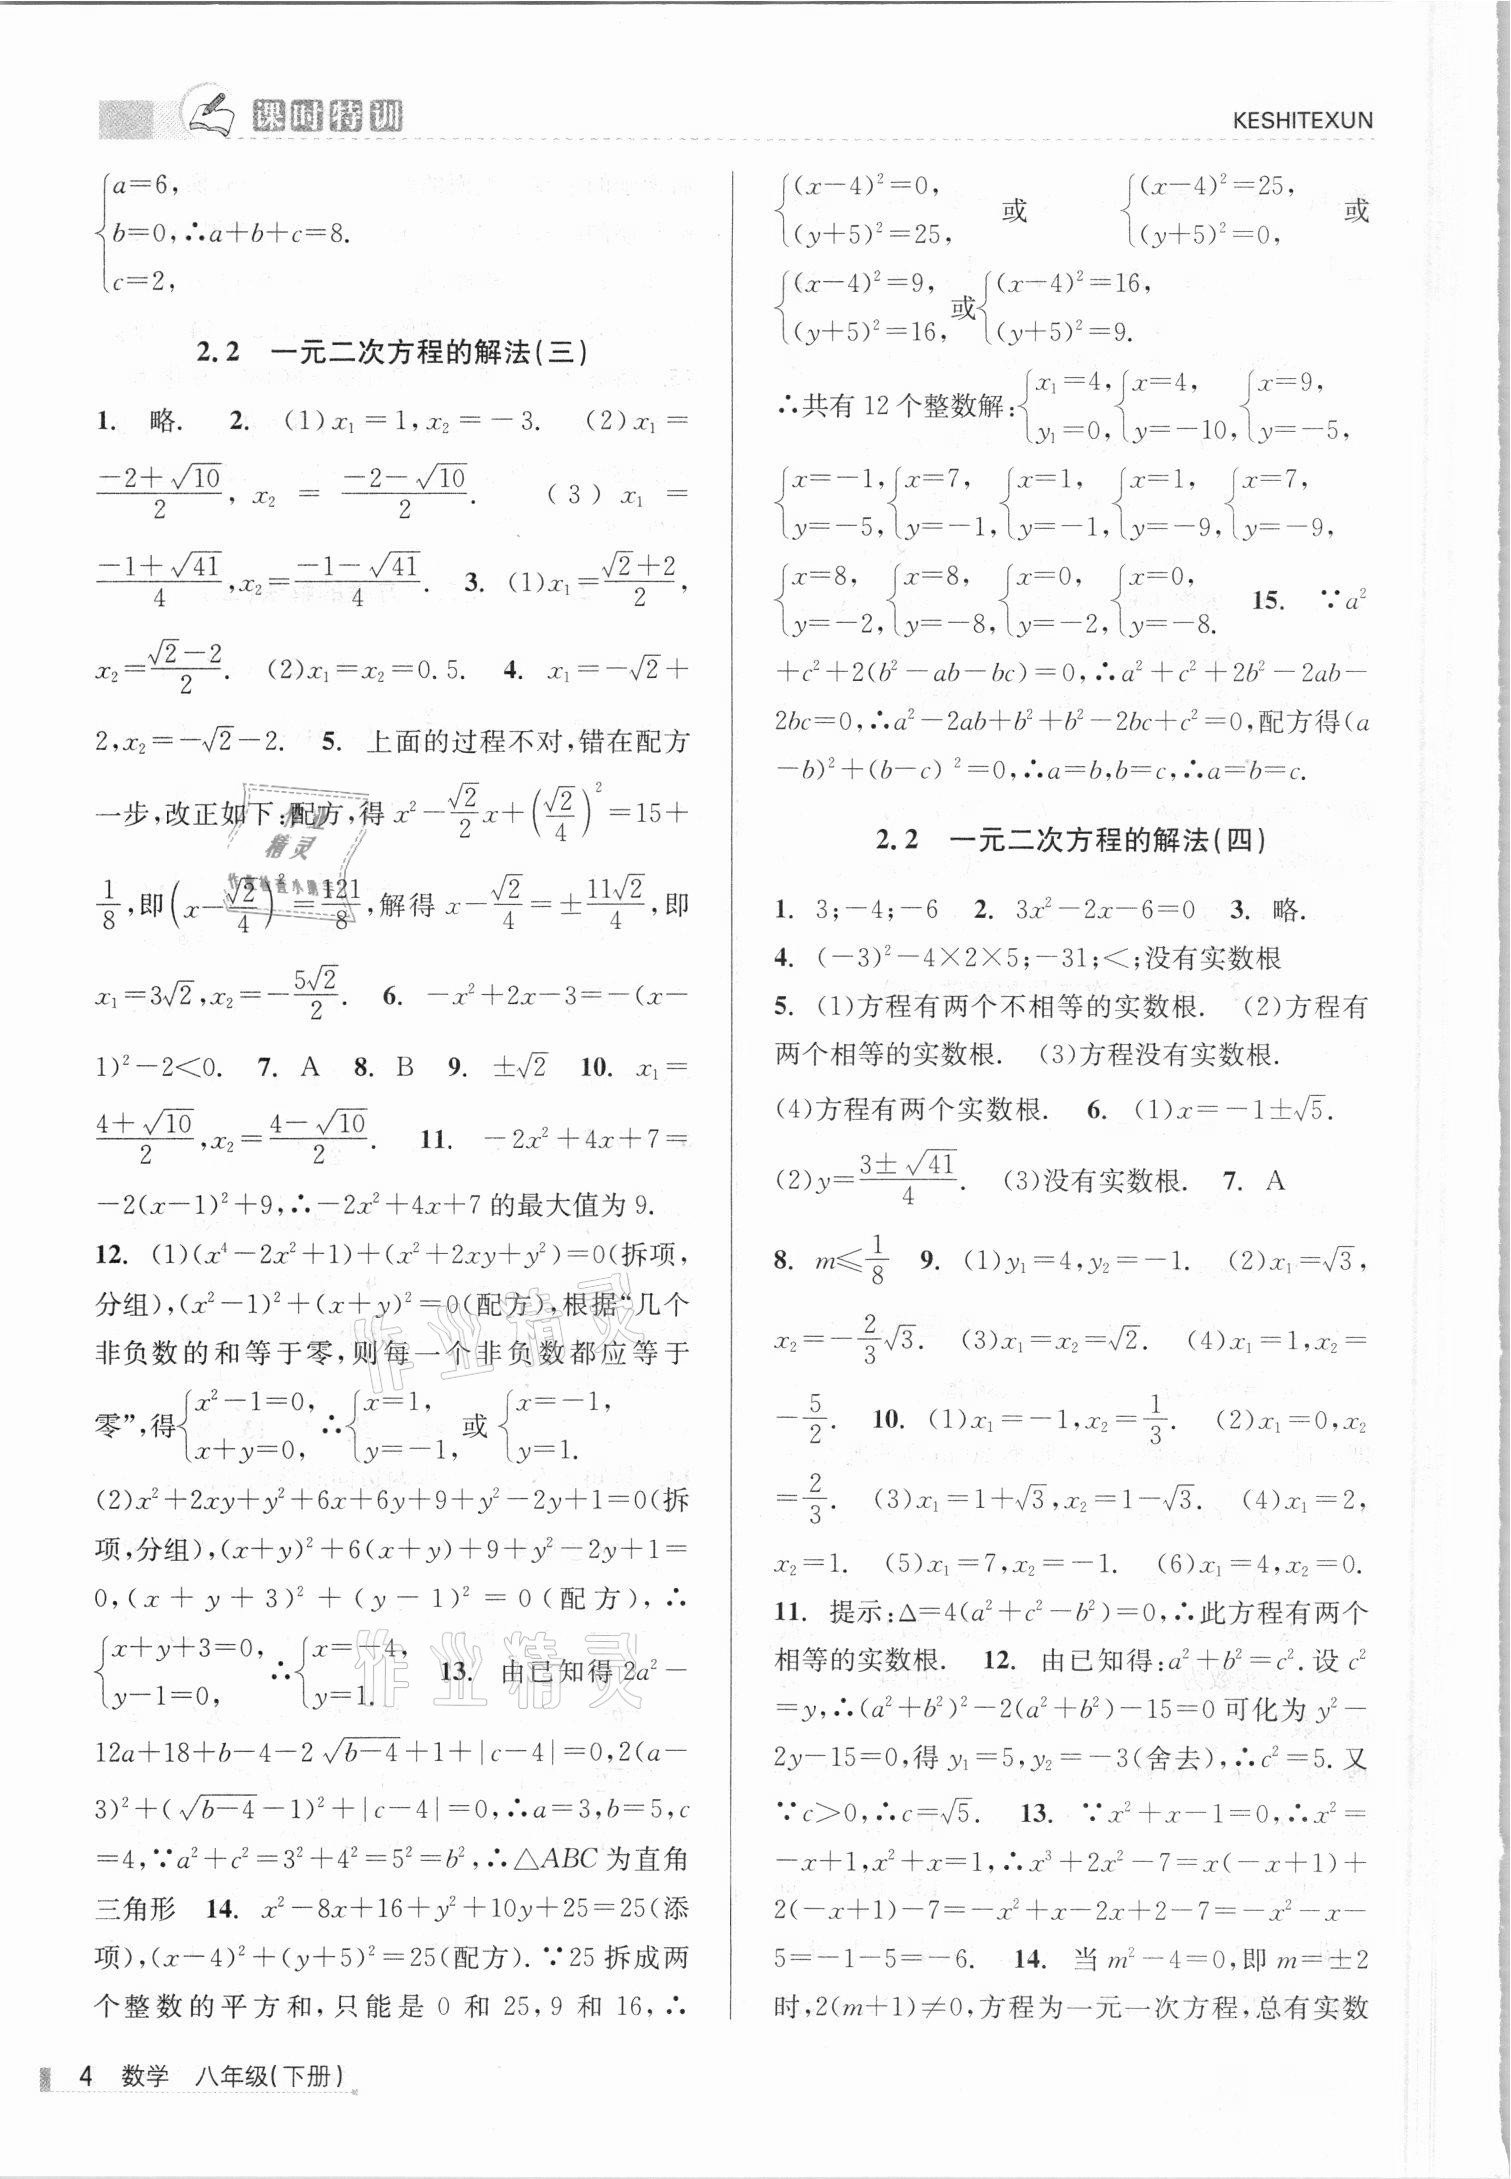 课时特训
KESHITEXUN
{a=6,
b=0,∴a+b+c=8.
c=2,
2.2 一元二次方程的解法(三)
1. 略. 2. (1)x₁=1,x₂=-3. (2)x₁=
(-2+√10)/2, x₂=(-2-√10)/2. (3)x₁=
(-1+√41)/4,x₂=(-1-√41)/4. 3. (1)x₁=(√2+2)/2,
x₂=(√2-2)/2. (2)x₁=x₂=0.5. 4. x₁=-√2+
2,x₂=-√2-2. 5. 上面的过程不对,错在配方
一步,改正如下:配方,得 x²-(√2/2)x+(√2/4)²=15+
1/8,即(x-√2/4)²=121/8,解得 x-√2/4=±11√2/4,即
x₁=3√2,x₂=-5√2/2. 6. -x²+2x-3=-(x-
1)²-2<0. 7. A 8. B 9. ±√2 10. x₁=
(4+√10)/2,x₂=(4-√10)/2. 11. -2x²+4x+7=
-2(x-1)²+9,∴-2x²+4x+7 的最大值为 9.
12. (1)(x⁴-2x²+1)+(x²+2xy+y²)=0(拆项,
分组),(x²-1)²+(x+y)²=0(配方),根据“几个
非负数的和等于零,则每一个非负数都应等于
零”,得{x²-1=0, x+y=0, ∴{x=1, y=-1, 或{x=-1, y=1.
(2)x²+2xy+y²+6x+6y+9+y²-2y+1=0(拆
项,分组),(x+y)²+6(x+y)+9+y²-2y+1=
0,(x+y+3)²+(y-1)²=0(配方),∴
{x+y+3=0, y-1=0, ∴{x=-4, y=1. 13. 由已知得 2a²-
12a+18+b-4-2√(b-4)+1+|c-4|=0,2(a-
3)²+(√(b-4)-1)²+|c-4|=0,∴a=3,b=5,c
=4,∵a²+c²=3²+4²=5²=b²,∴△ABC 为直角
三角形 14. x²-8x+16+y²+10y+25=25(添
项),(x-4)²+(y+5)²=25(配方).∵25 拆成两
个整数的平方和,只能是 0 和 25,9 和 16,∴
{(x-4)²=0, (y+5)²=25, 或 {(x-4)²=25, (y+5)²=0, 或
{(x-4)²=9, (y+5)²=16, 或{(x-4)²=16, (y+5)²=9.
∴共有 12 个整数解:{x₁=4, y₁=0, {x=4, y=-10, {x=9, y=-5,
{x=-1, y=-5, {x=7, y=-1, {x=1, y=-1, {x=1, y=-9, {x=7, y=-9,
{x=8, y=-2, {x=8, y=-8, {x=0, y=-2, {x=0, y=-8. 15. ∵a²
+c²+2(b²-ab-bc)=0,∴a²+c²+2b²-2ab-
2bc=0,∴a²-2ab+b²+b²-2bc+c²=0,配方得(a
-b)²+(b-c)²=0,∴a=b,b=c,∴a=b=c.
2.2 一元二次方程的解法(四)
1. 3;-4;-6 2. 3x²-2x-6=0 3. 略.
4. (-3)²-4×2×5;-31;<;没有实数根
5. (1)方程有两个不相等的实数根. (2)方程有
两个相等的实数根. (3)方程没有实数根.
(4)方程有两个实数根. 6. (1)x=-1±√5.
(2)y=(3±√41)/4. (3)没有实数根. 7. A
8. m≤1/8 9. (1)y₁=4,y₂=-1. (2)x₁=√3,
x₂=-2/3√3. (3)x₁=x₂=√2. (4)x₁=1,x₂=
-5/2. 10. (1)x₁=-1,x₂=1/3. (2)x₁=0,x₂
=2/3. (3)x₁=1+√3,x₂=1-√3. (4)x₁=2,
x₂=1. (5)x₁=7,x₂=-1. (6)x₁=4,x₂=0.
11. 提示:Δ=4(a²+c²-b²)=0,∴此方程有两个
相等的实数根. 12. 由已知得:a²+b²=c².设 c²
=y,∴(a²+b²)²-2(a²+b²)-15=0 可化为 y²-
2y-15=0,得 y₁=5,y₂=-3(舍去),∴c²=5.又
∵c>0,∴c=√5. 13. ∵x²+x-1=0,∴x²=
-x+1,x²+x=1,∴x³+2x²-7=x(-x+1)+
2(-x+1)-7=-x²+x-2x+2-7=-x²-x-
5=-1-5=-6. 14. 当 m²-4=0,即 m=±2
时,2(m+1)≠0,方程为一元一次方程,总有实数
4 数学 八年级(下册)
作业精灵
作业精灵
作业精灵